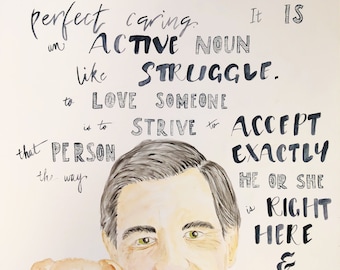 perfect caring. It IS
an ACTIVE NOUN
like STRUGGLE.
to LOVE SOMEONE
is to STRIVE to ACCEPT
that PERSON EXACTLY
the way ME OR SHE
is RIGHT
HERE
&